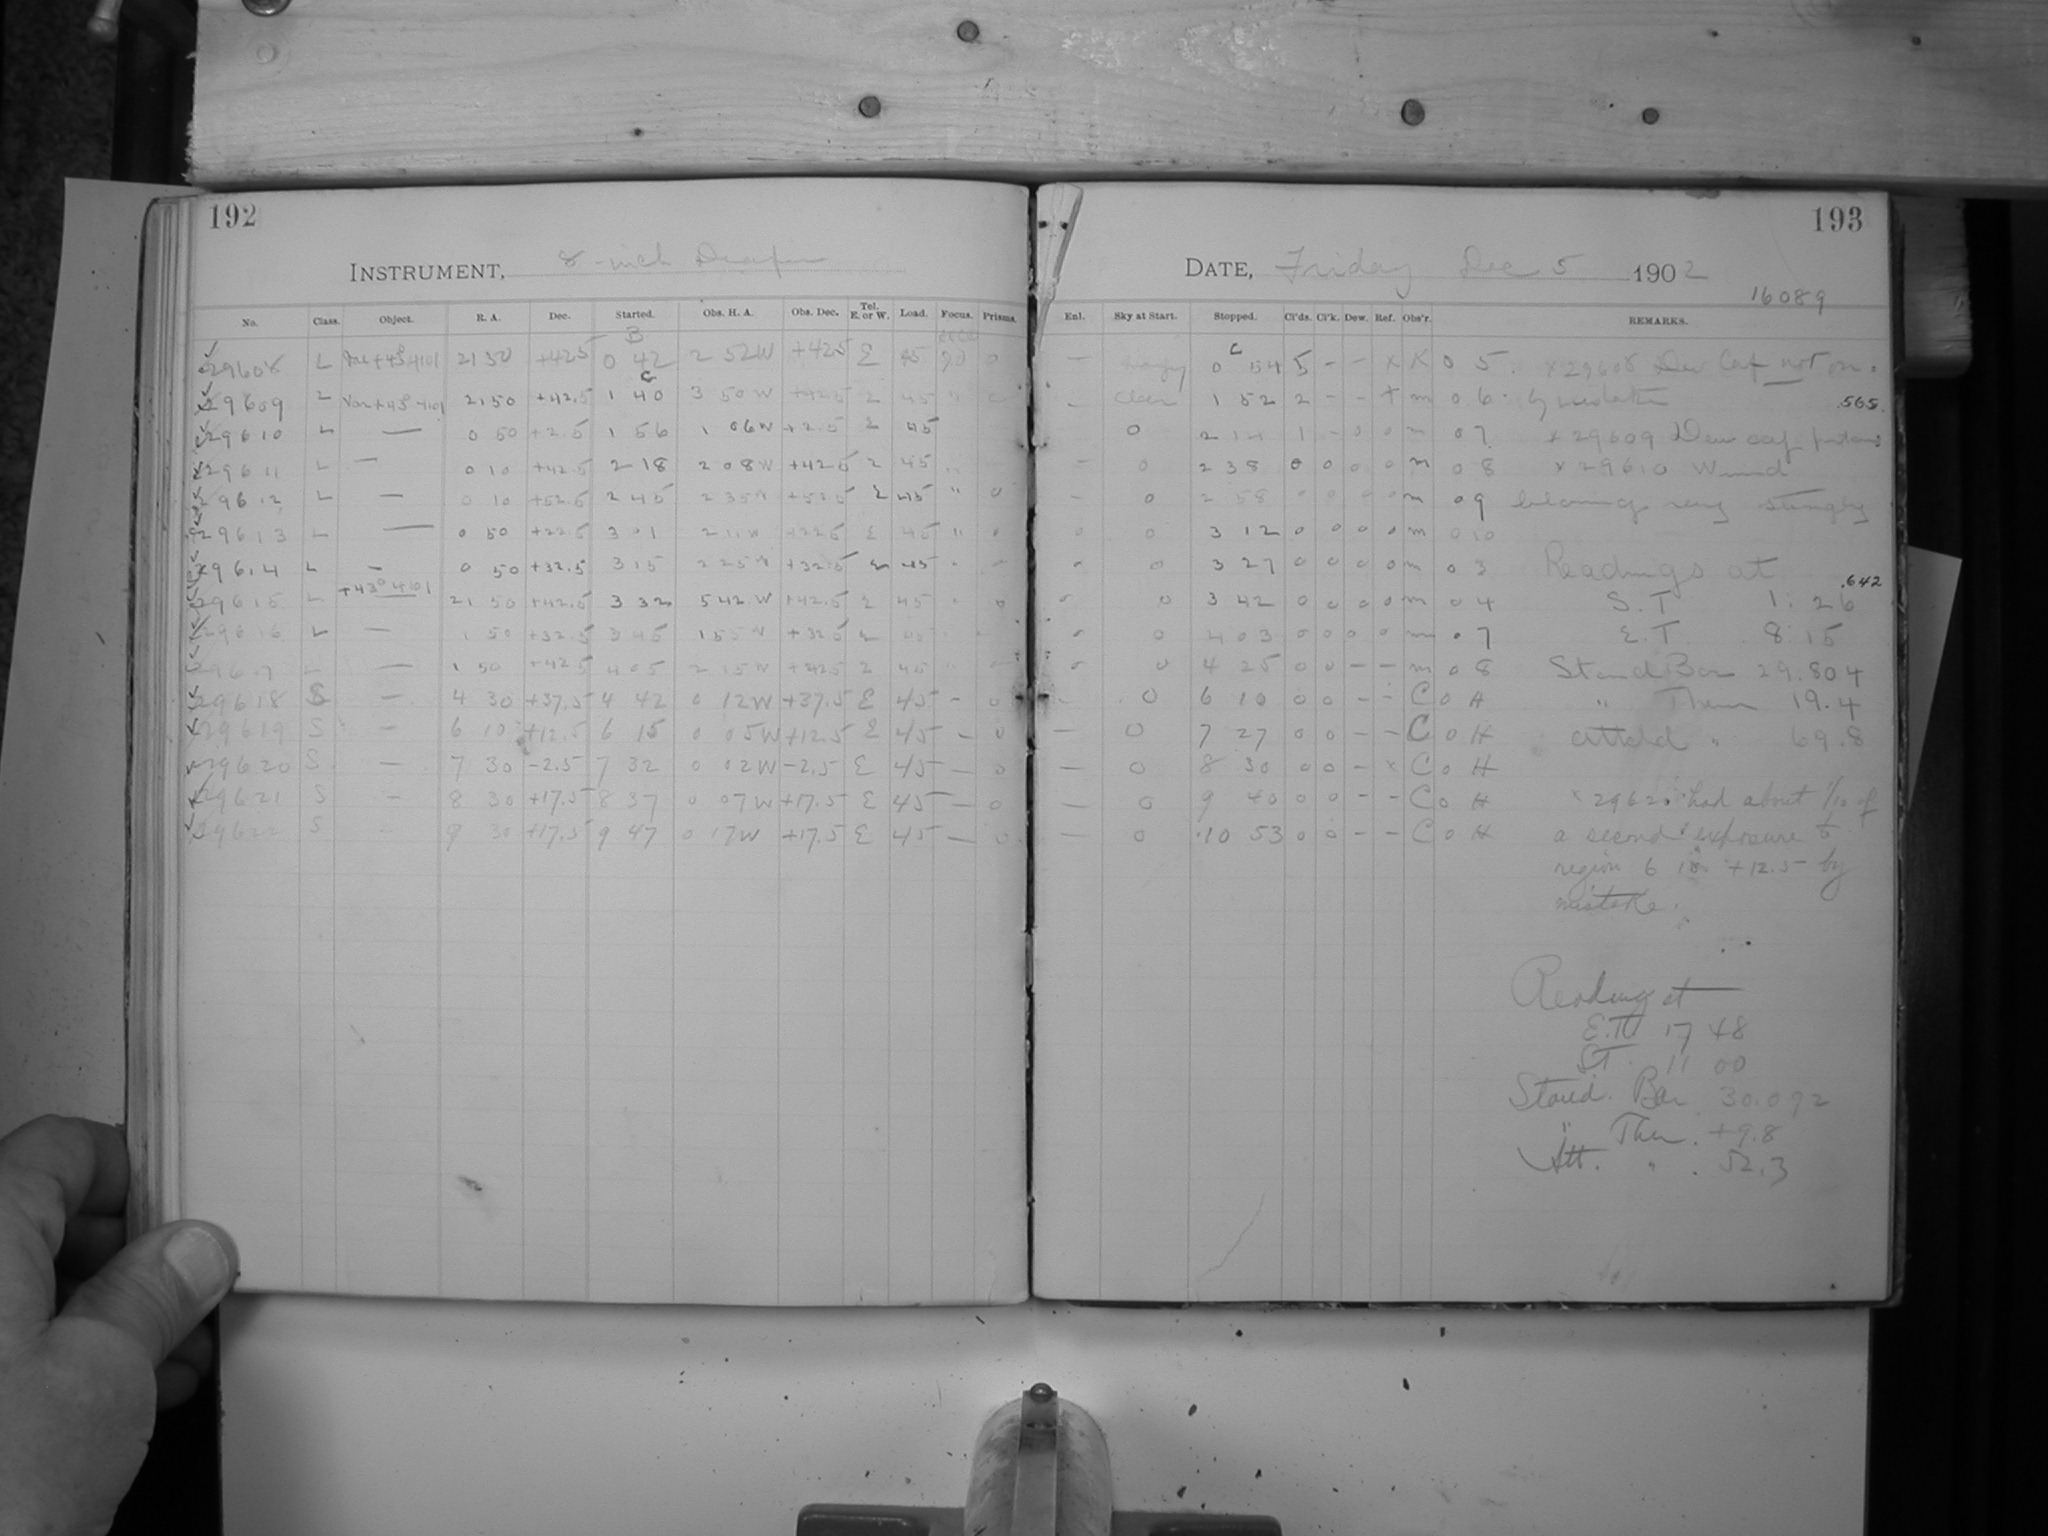 192
INSTRUMENT, 8-inch Draper
No. Class. Object. R. A. Dec. Started. Obs. H. A. Obs. Dec. Tel. E. or W. Load. Focus. Prisms.
29608 L +43° 4101 21 50 +42.5 0 42 2 52 W +42.5 E 45 0
29609 L Var +43° 4101 21 50 +42.5 1 40 3 50 W +42.5 E 45 "
29610 L — 0 50 +2.5 1 56 1 06 W +2.5 E 45
29611 L — 0 10 +42.5 2 18 2 08 W +42.5 E 45 "
29612 L — 0 10 +52.5 2 45 2 35 W +52.5 E 45 " 0
29613 L — 0 50 +22.5 3 01 2 11 W +22.5 E 45 " 0
29614 L — 0 50 +32.5 3 15 2 25 W +32.5 E 45
29615 L +43° 4101 21 50 +42.5 3 32 5 42 W +42.5 E 45 " 0
29616 L — 1 50 +32.5 3 45 1 55 W +32.5 E 45
29617 L — 1 50 +42.5 4 05 2 15 W +42.5 E 45
29618 S — 4 30 +37.5 4 42 0 12 W +37.5 E 45 — 0
29619 S — 6 10 +12.5 6 15 0 05 W +12.5 E 45 — 0
29620 S — 7 30 -2.5 7 32 0 02 W -2.5 E 45 — 0
29621 S — 8 30 +17.5 8 37 0 07 W +17.5 E 45 — 0
29622 S — 9 30 +17.5 9 47 0 17 W +17.5 E 45 — 0
193
DATE, Friday Dec 5 1902
16089
Enl. Sky at Start. Stopped. Cl'ds. Cl'k. Dew. Ref. Obs'r. REMARKS.
— hazy 0 54 5 — — x K 0 5 x 29608 Dew Cap not on.
— Clear 1 52 2 — — x m 0 6 by mistake .565
0 1 — 0 0 m 0 7 x 29609 Dew cap
— 0 2 38 0 0 0 0 m 0 8 x 29610 Wind
— 0 2 58 0 0 0 0 m 0 9 blowing very strongly
0 0 3 12 0 0 0 0 m 0 10
0 3 27 0 0 0 0 m 0 3 Readings at .642
0 0 3 42 0 0 0 0 m 0 4 S. T 1: 26
0 0 4 03 0 0 0 0 m 0 7 E. T 8:15
0 0 4 25 0 0 — — m 0 8 Stand Bar 29.804
0 6 10 0 0 — — C 0 H " Ther 19.4
— 0 7 27 0 0 — — C 0 H attchd " 69.8
— 0 8 30 0 0 — x C 0 H
— 0 9 40 0 0 — — C 0 H x 29620 had about 1/10 of
— 0 10 53 0 0 — — C 0 H a second exposure to
region 6 10 +12.5 by
mistake.
Reading at
E.T. 17 48
S.T. 11 00
Stand. Bar 30.092
" Ther. +9.8
Att. " . 52.3